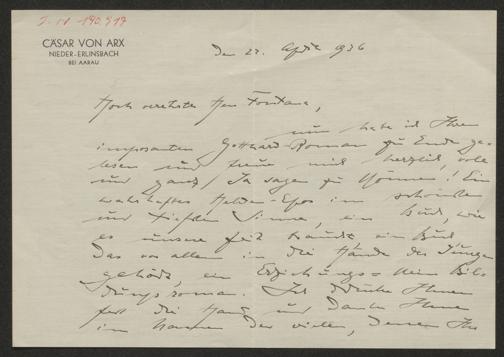 CÄSAR VON ARX
NIEDER-ERLINSBACH
BEI AARAU
Den 22. April 1936
Hoch verehrter Herr Fontana,
nun habe ich Ihren
imposanten Gotthard-Roman zu Ende ge-
lesen und freue mich herzlich, voll
und ganz Ja sagen zu können! Ein
wahrhaftes Helden-Epos im schönsten
und tiefsten Sinne, ein Buch, wie
es unsere Zeit braucht, ein Buch
Das vor allem in die Hände der Jungen
gehört, ein Erziehungs= kein Bil-
dungsroman. Ich drücke Ihnen
fest die Hand und Danke Ihnen
im Namen der vielen, denen Ihr